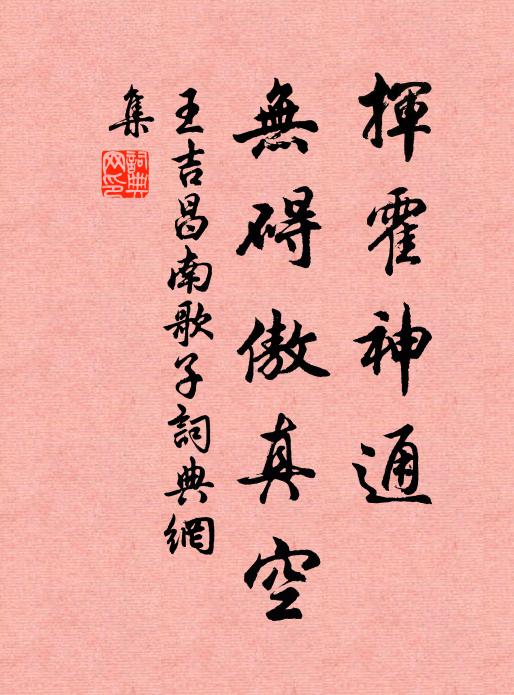 揮霍神通
無碍傲真空
王吉昌南歌子詞典網
集
詞典
网印